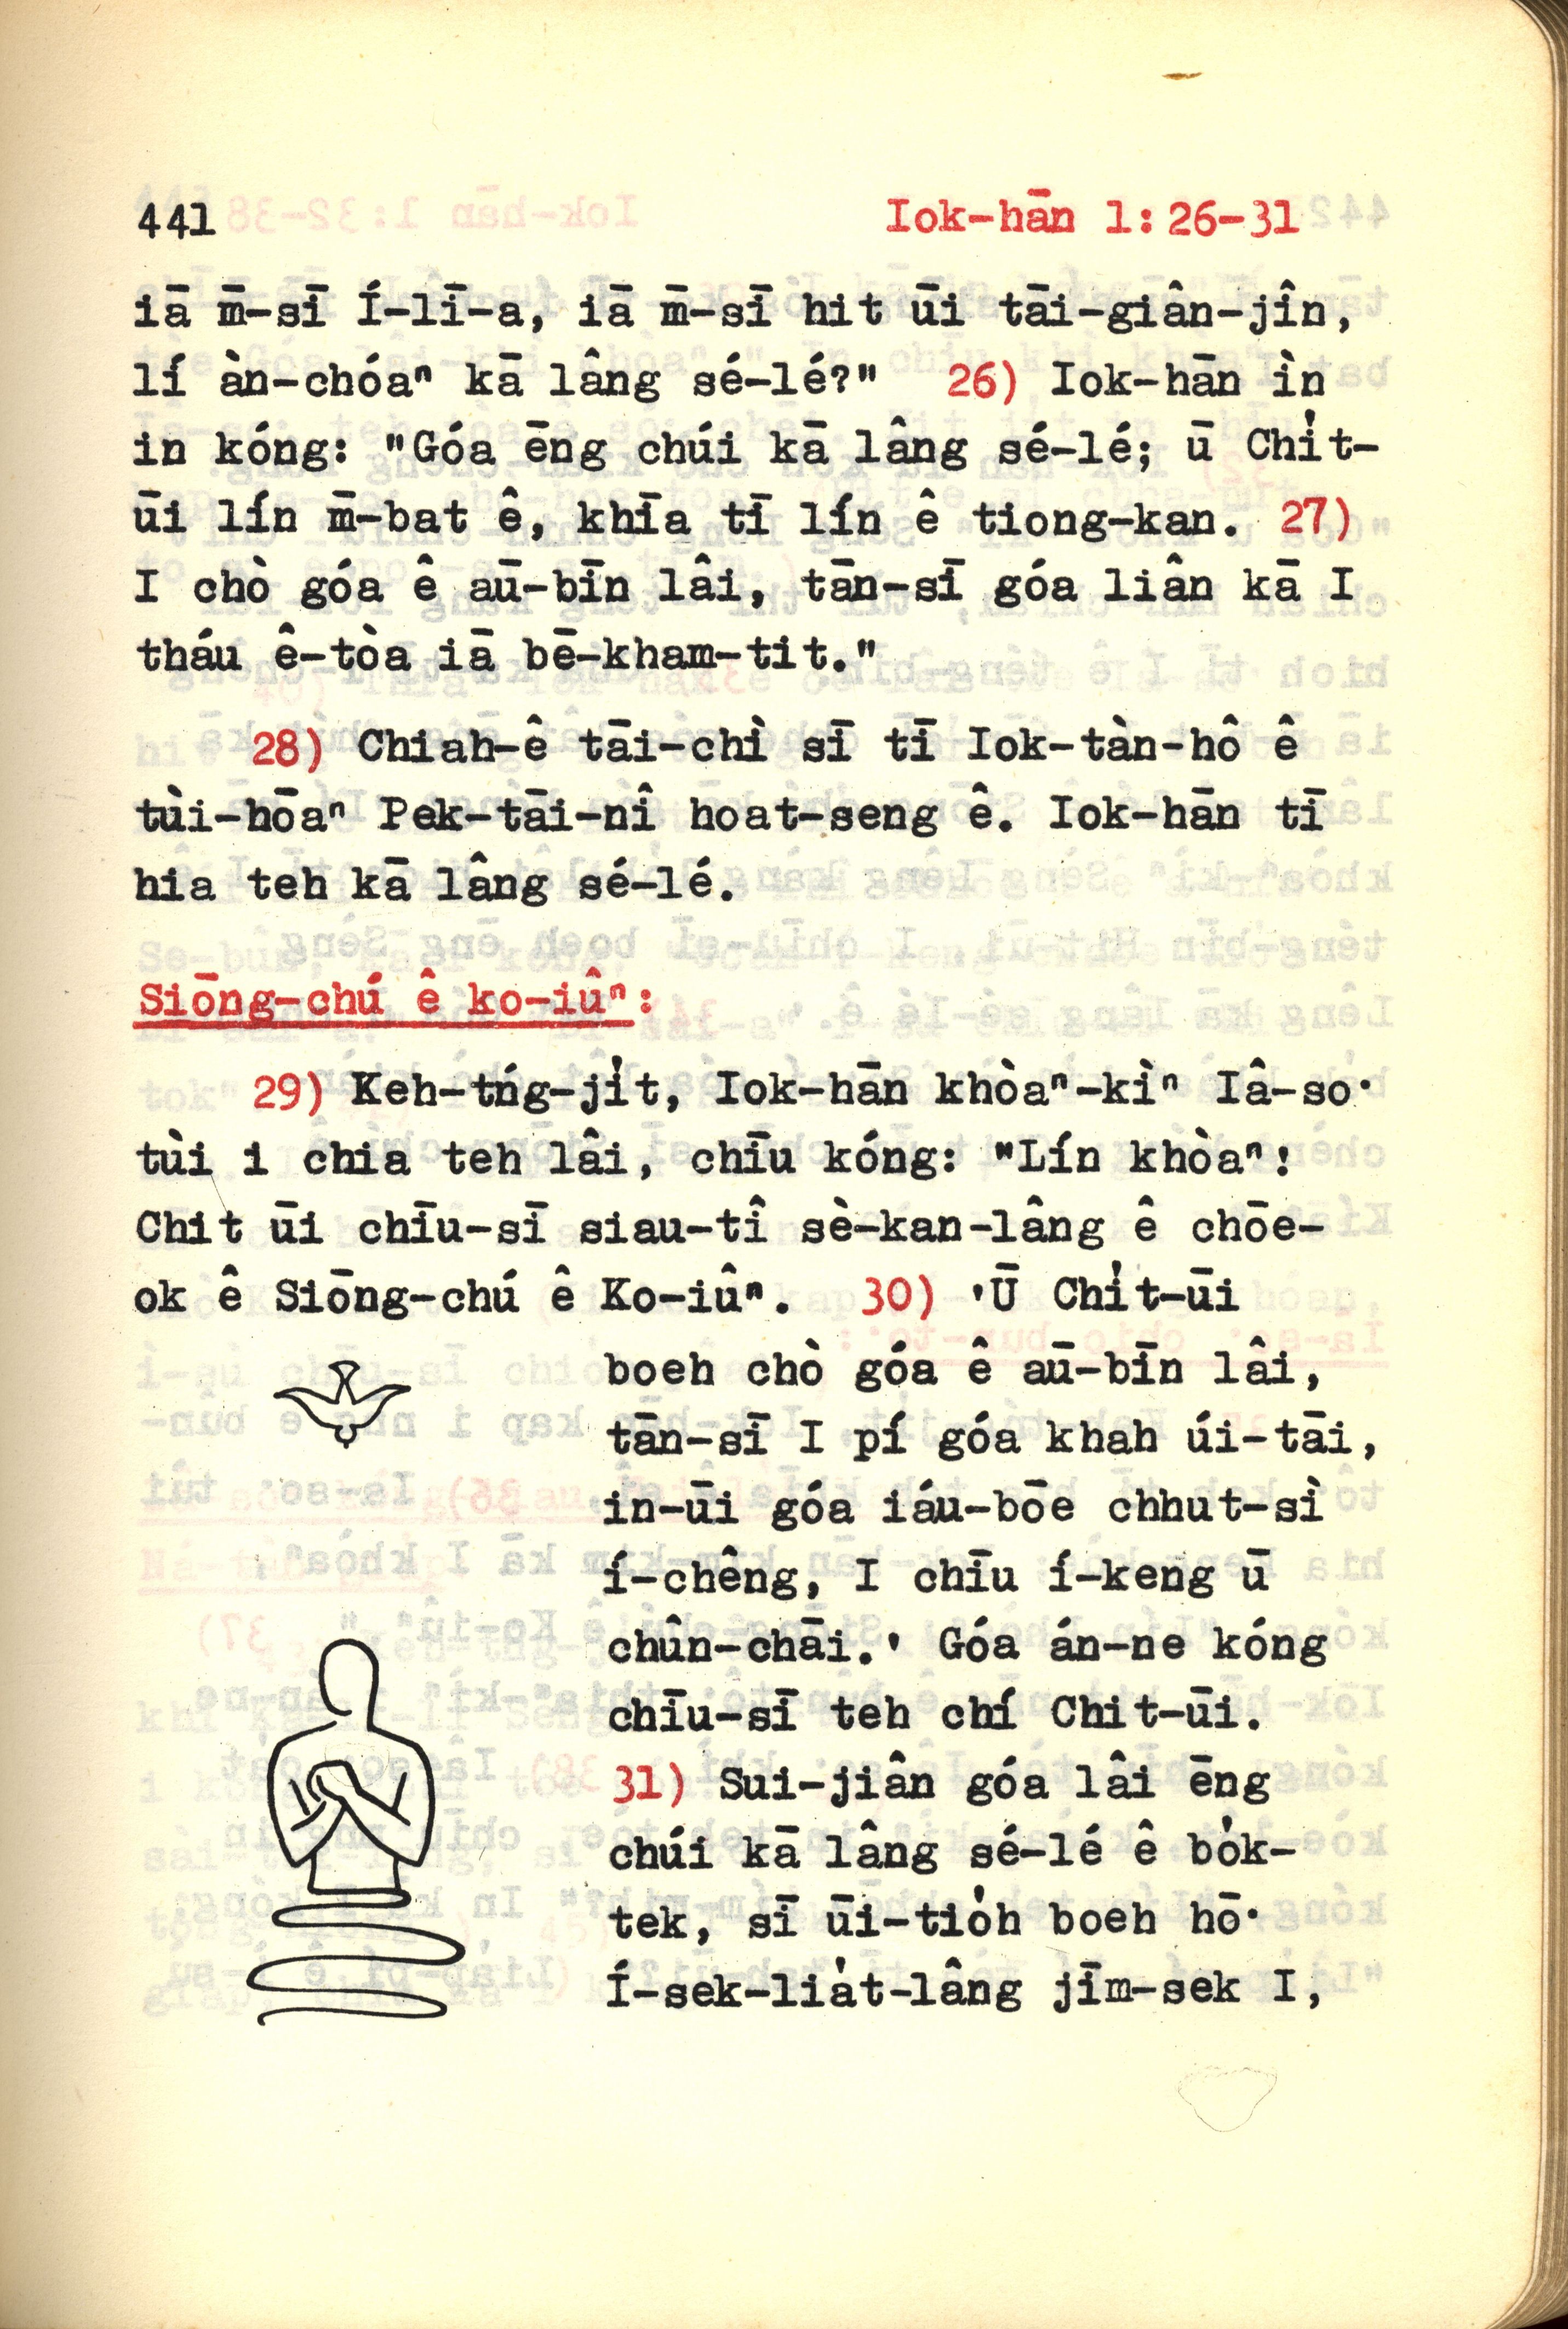 441 Iok-hān 1:26-31
iā m̄-sī Í-lī-a, iā m̄-sī hit ūi tāi-giân-jîn,
lí àn-chóaⁿ kā lâng sé-lé?" 26) Iok-hān ìn
in kóng: "Góa ēng chúi kā lâng sé-lé; ū Chi̍t-
ūi lín m̄-bat ê, khīa tī lín ê tiong-kan. 27)
I chò góa ê aū-bīn lâi, tān-sī góa liân kā I
tháu ê-tòa iā bē-kham-tit."
28) Chiah-ê tāi-chì sī tī Iok-tàn-hô ê
tùi-hōaⁿ Pek-tāi-nî hoat-seng ê. Iok-hān tī
hia teh kā lâng sé-lé.
Siōng-chú ê ko-iûⁿ:
29) Keh-tńg-ji̍t, Iok-hān khòaⁿ-kìⁿ Iâ-so·
tùi i chia teh lâi, chīu kóng: "Lín khòaⁿ!
Chit ūi chīu-sī siau-tî sè-kan-lâng ê chōe-
ok ê Siōng-chú ê Ko-iûⁿ. 30) 'Ū Chi̍t-ūi
boeh chò góa ê aū-bīn lâi,
tān-sī I pí góa khah úi-tāi,
in-ūi góa iáu-bōe chhut-sì
í-chêng, I chīu í-keng ū
chûn-chāi.' Góa án-ne kóng
chīu-sī teh chí Chit-ūi.
31) Sui-jiân góa lâi ēng
chúi kā lâng sé-lé ê bo̍k-
tek, sī ūi-tio̍h boeh hō·
Í-sek-lia̍t-lâng jīm-sek I,